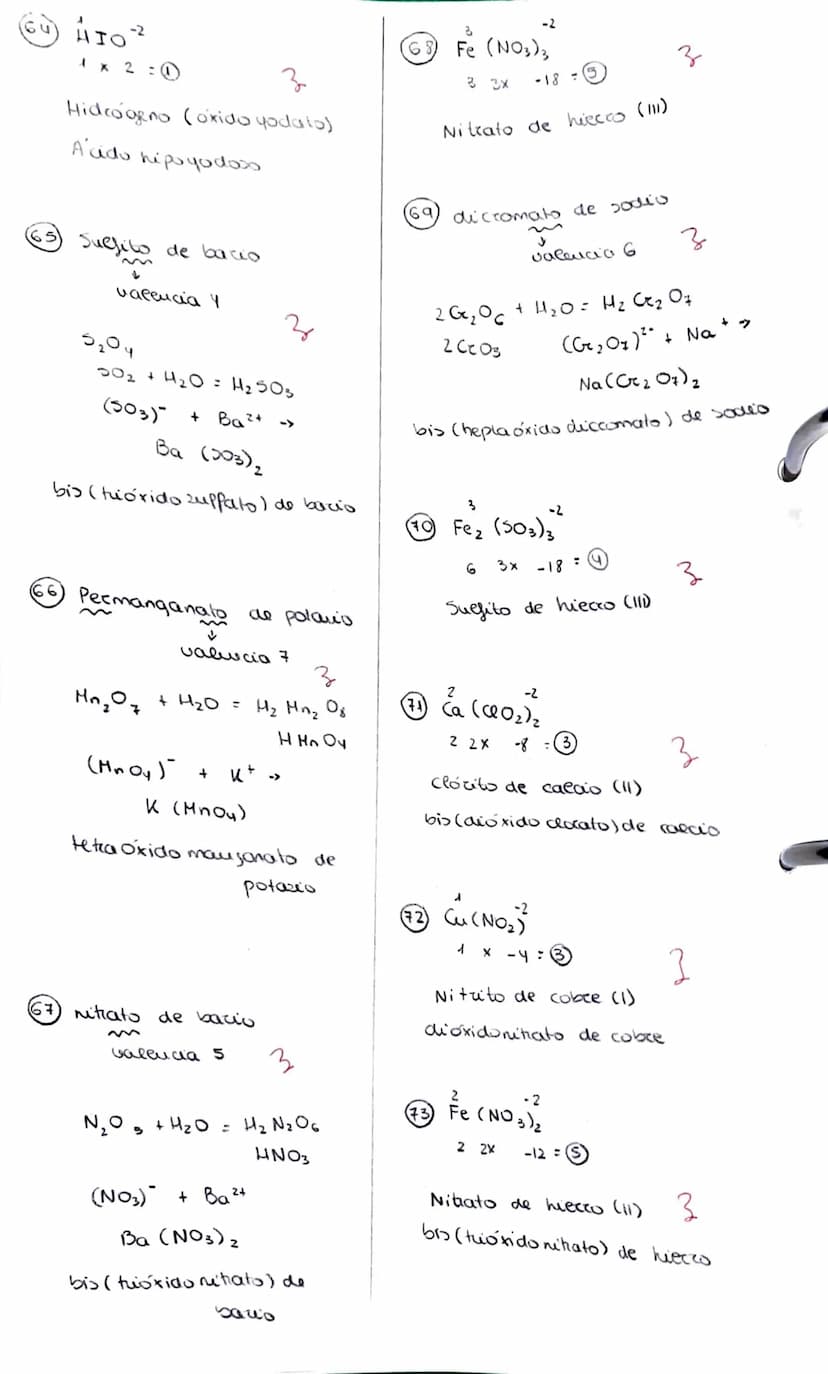 64 HIO
1 -2
1 x 2 = 1
3
Hidrógeno (óxido yodato)
Ácido hipoyodoso
65 Sulfito de bario
valencia 4
3
S2O4
SO2 + H2O = H2SO3
(SO3)- + Ba2+ ->
Ba (SO3)2
bis (trióxido sulfato) de bario
66 Permanganato de potasio
valencia 7
3
Mn2O7 + H2O = H2 Mn2 O8
HMnO4
(MnO4)- + K+ ->
K (MnO4)
tetraóxido manganato de
potasio
67 nitrato de bario
valencia 5
3
N2O5 + H2O = H2N2O6
HNO3
(NO3)- + Ba2+
Ba (NO3)2
bis (trióxido nitrato) de
bario
68 Fe (NO3)3
3 -2
3 3x -18 = 5
3
Nitrato de hierro (III)
69 dicromato de sodio
valencia 6
3
2Cr2O6 + H2O = H2 Cr2 O7
2CrO3 (Cr2O7)2- + Na+ ->
Na(Cr2O7)2
bis (heptaóxido dicromato) de sodio
70 Fe2 (SO3)3
3 -2
6 3x -18 = 4
3
Sulfito de hierro (III)
71 Ca (ClO2)2
2 -2
2 2x -8 = 3
3
Clorito de calcio (II)
bis (dióxido clorato) de calcio
72 Cu (NO2)
1 -2
1 x -4 = 3
3
Nitrito de cobre (I)
dióxidonitrato de cobre
73 Fe (NO3)2
2 -2
2 2x -12 = 5
Nitrato de hierro (II)
3
bis (trióxido nitrato) de hierro